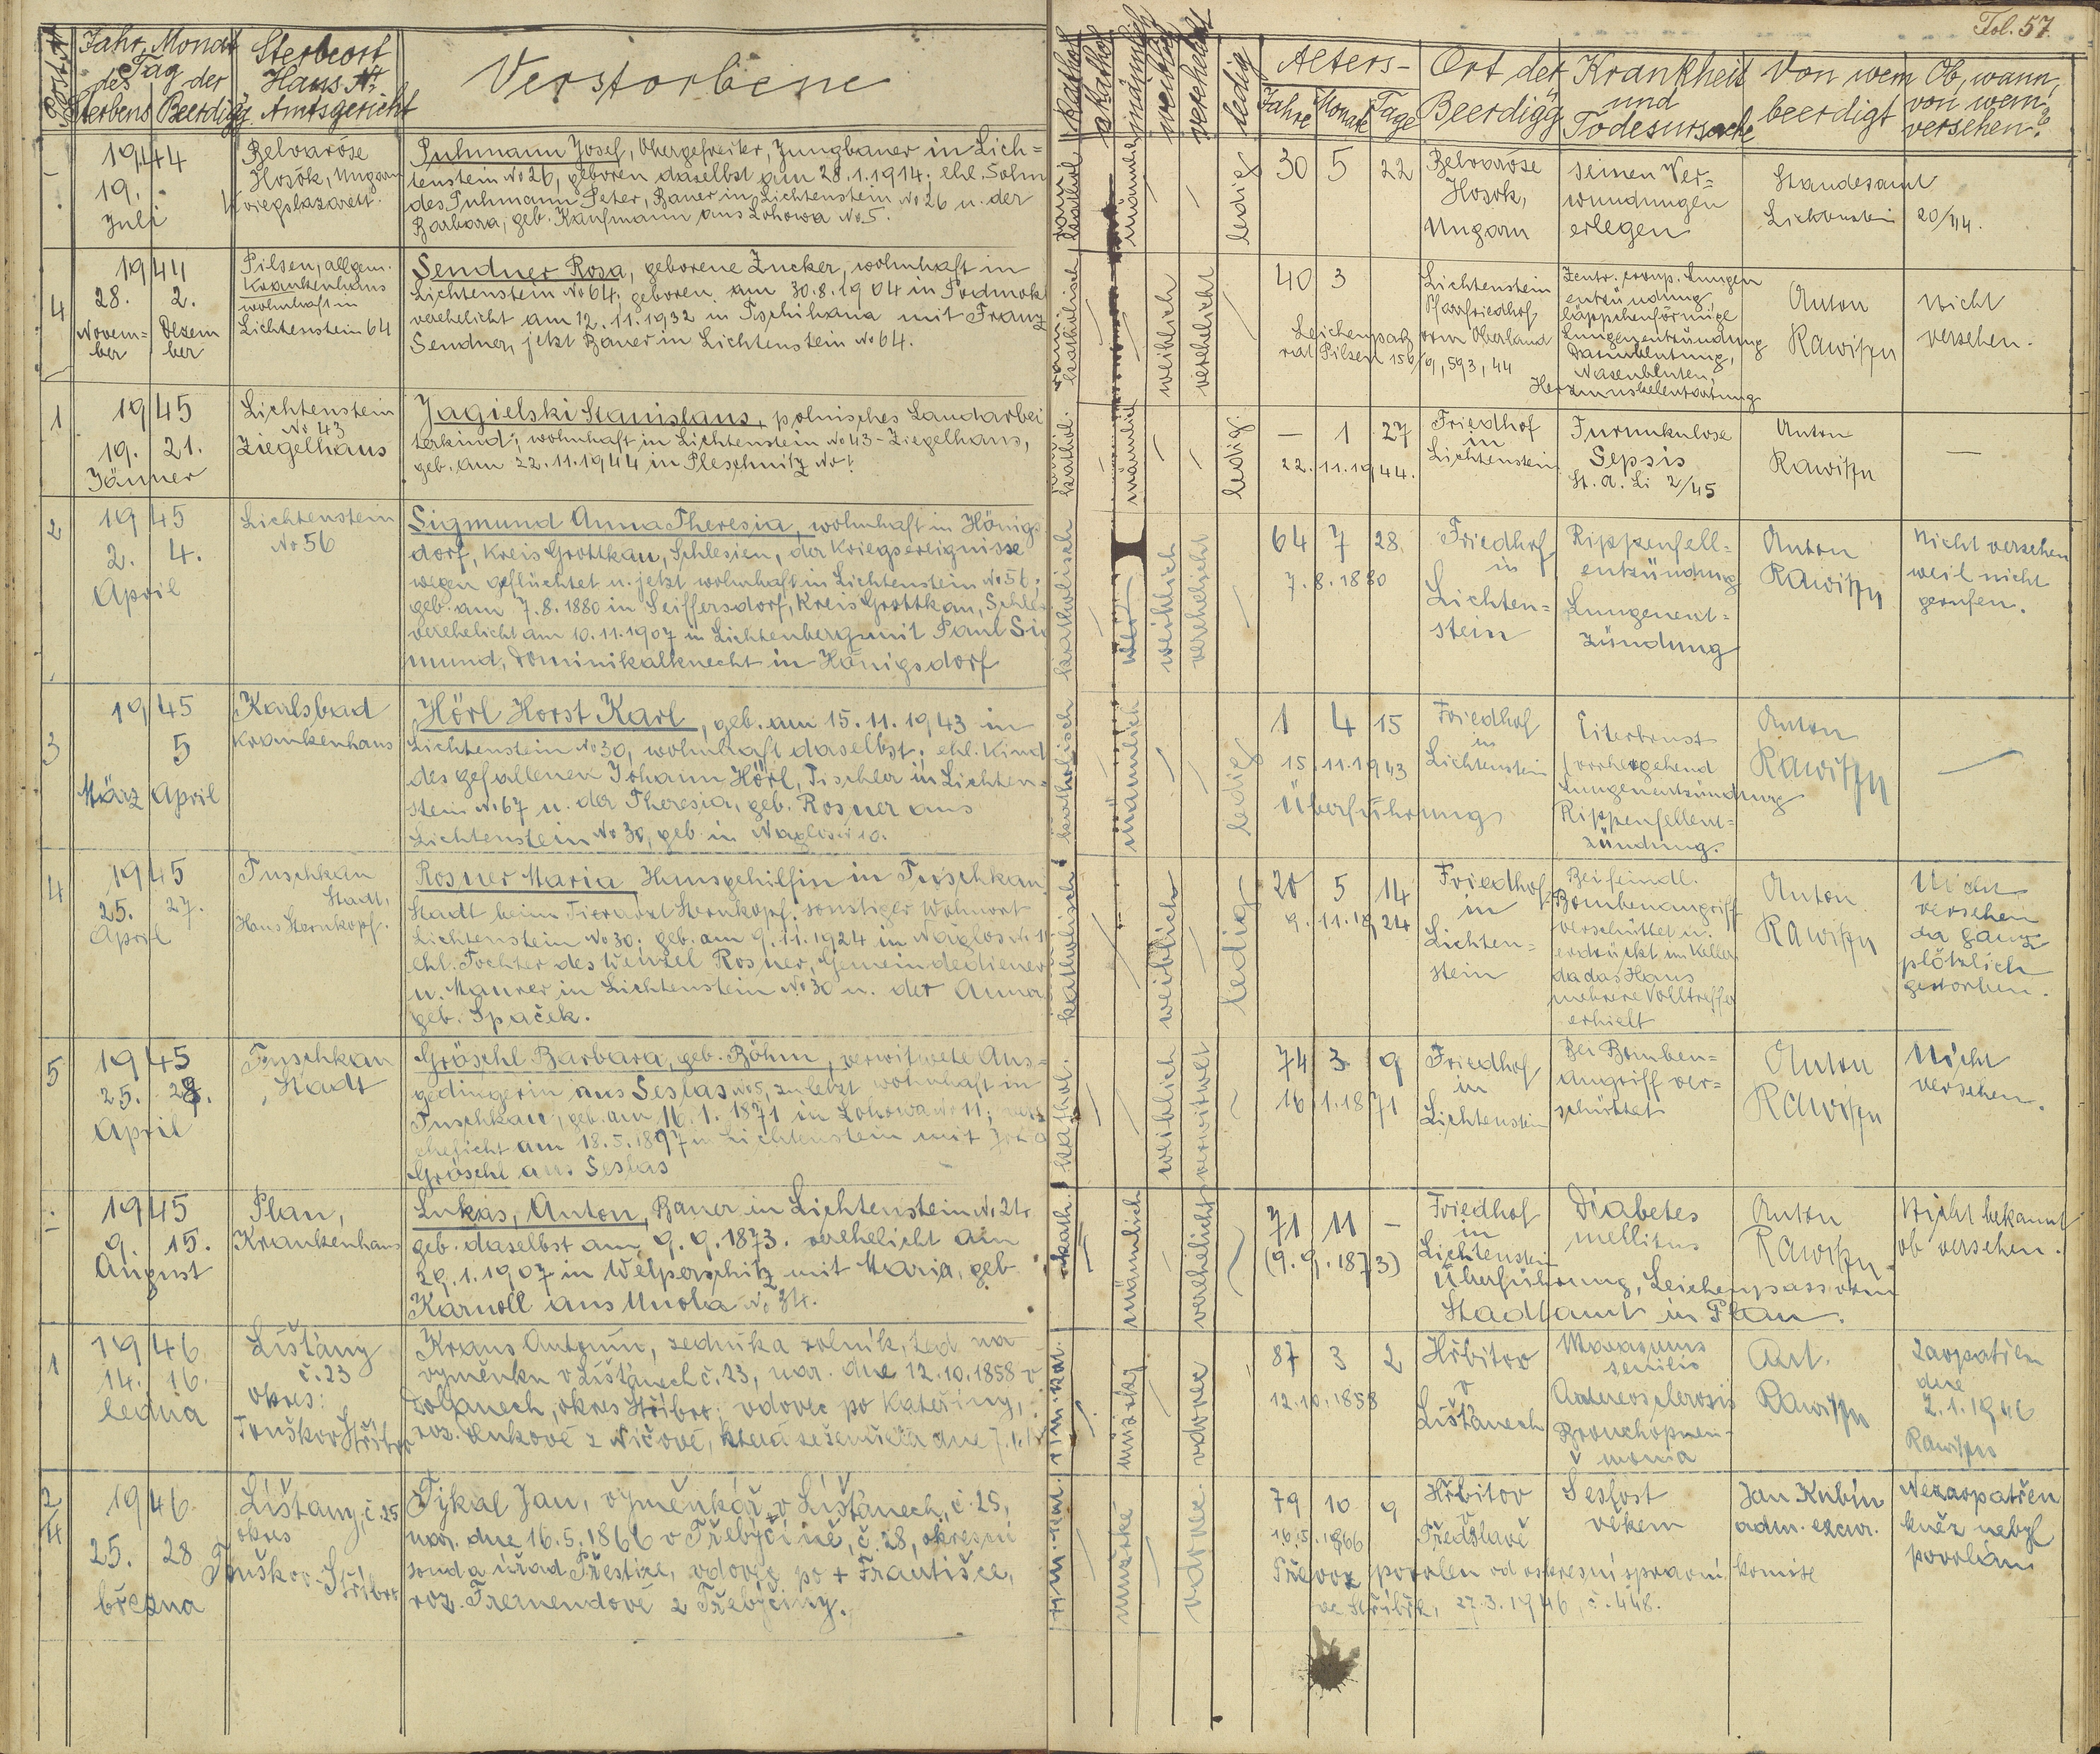 Fol. 57.
Post Nr
Jahr, Monat
Tag
des der
Sterbens Beerdigg.
Sterbeort
Haus Nr.
Amtsgericht
Verstorbene
kathol.
akathol.
männlich
weiblich
verehelicht
ledig
Alters-
Jahre Monate Tage
Ort der
Beerdigg.
Krankheit
und
Todesursache
Von wem
beerdigt
Ob, wann,
von wem
versehen?
1944
19.
Juli
Belvaröse
Hosök, Ungarn
Kriegslazarett.
Puhmann Josef, Obergefreiter, Jungbauer in Lich=
tenstein No 26, geboren daselbst am 28.1.1914; ehl. Sohn
des Puhmann Peter, Bauer in Lichtenstein No 26 u. der
Barbara, geb. Kaufmann aus Lohowa No 5.
männlich
ledig
30 5 22
Belvaröse
Hosök,
Ungarn
seinen Ver=
wundungen
erlegen
Standesamt
Lichtenstein 20/44.
4
1944
28. 2.
Novem= Dezem
ber ber
Pilsen, allgem.
Krankenhaus
wohnhaft in
Lichtenstein 64
Sendner Rosa, geborene Zucker, wohnhaft in
Lichtenstein No 64, geboren am 30.8.1904 in Podmok
verehelicht am 12.11.1932 in Tschihana mit Franz
Sendner, jetzt Bauer in Lichtenstein No 64.
weiblich
verehelicht
40 3
Lichtenstein
Pfarrfriedhof
Leichenpaß vom Oberland
rat Pilsen 156/9, 593, 44
Zentr. croup. Lungen
entzündung,
läppchenförmige
Lungenentzündung
Darmblutung,
Nasenbluten,
Herzmuskelentartung
Anton
Rawitzn
nicht
versehen.
1
1945
19. 21.
Jänner
Lichtenstein
No 43
Ziegelhaus
Jagielski Stanislaus, polnisches Landarbei
terkind; wohnhaft in Lichtenstein No 43 - Ziegelhaus,
geb. am 22.11.1944 in Pleschnitz No 1
männlich
ledig.
— 1 27
22.11.1944.
Friedhof
in
Lichtenstein
Furunkulose
Sepsis
St. A. Li 2/45
Anton
Rawitzn
—
2
1945
2. 4.
April
Lichtenstein
No 56
Sigmund Anna Theresia, wohnhaft in Hönigs
dorf, Kreis Grottkau, Schlesien, der Kriegsereignisse
wegen geflüchtet u. jetzt wohnhaft in Lichtenstein No 56;
geb. am 7.8.1880 in Seiffersdorf, Kreis Grottkau, Schles
verehelicht am 10.11.1907 in Lichtenberg mit Paul Si
mund, Dominikalknecht in Hönigsdorf
katholisch
weiblich
verehelicht
64 7 28
7.8.1880
Friedhof
in
Lichten=
stein
Rippenfell=
entzündung
Lungenent=
zündung
Anton
Rawitzn
nicht versehen
weil nicht
gerufen.
3
1945
5
März April
Karlsbad
Krankenhaus
Hörl Horst Karl, geb. am 15.11.1943 in
Lichtenstein No 30, wohnhaft daselbst; ehl. Kind
des gefallenen Johann Hörl, Tischler in Lichten=
stein No 67 u. der Theresia, geb. Rosner aus
Lichtenstein No 30, geb. in Naglos No 10.
katholisch
männlich
ledig
1 4 15
15.11.1943
Überführung
Friedhof
in
Lichtenstein
Eiterbrust
vorhergehend
Lungenentzündung
Rippenfellent=
zündung.
Anton
Rawitzn
4
1945
25. 27.
April
Tuschkau
Stadt,
Haus Sternkopf.
Rosner Maria, Hausgehilfin in Tuschkau
Stadt beim Tierarzt Sternkopf; sonstiger Wohnort
Lichtenstein No 30; geb. am 9.11.1924 in Naglos No 1
ehl. Tochter des Wenzel Rosner, Gemeindediener
u. Maurer in Lichtenstein No 30 u. der Anna
geb. Špaček.
katholisch
weiblich
ledig
20 5 14
9.11.1924
Friedhof
in
Lichten=
stein
Bei feindl.
Bombenangriff
verschüttet u.
erdrückt im Keller
da das Haus
mehrere Volltreffer
erhielt
Anton
Rawitzn
Nicht
versehen
da ganz
plötzlich
gestorben.
5
1945
25. 28.
April
Tuschkau
Stadt
Gröschl Barbara, geb. Böhm, verwitwete Aus=
gedingerin aus Seslas No 5, zuletzt wohnhaft in
Tuschkau, geb. am 16.1.1871 in Lohowa No 11; ver=
ehelicht am 18.5.1897 in Lichtenstein mit
Gröschl aus Seslas
kathol.
weiblich
verwitwet
74 3 9
16.1.1871
Friedhof
in
Lichtenstein
Bei Bomben=
angriff ver=
schüttet
Anton
Rawitzn
Nicht
versehen.
1945
9. 15.
August
Plan,
Krankenhaus
Lukas, Anton, Bauer in Lichtenstein No 24.
geb. daselbst am 9.9.1873. verehelicht am
29.1.1907 in Welperschitz mit Maria, geb.
Karnoll aus Unola No 34.
kath.
männlich
verehelicht
71 11 -
(9.9.1873)
Friedhof
in
Lichtenstein
Überführung, Leichenpass vom
Stadtamt in Plan.
Diabetes
mellitus
Anton
Rawitzn
Nicht bekannt
ob versehen.
1
1946
14. 16.
ledna
Líšťany
č. 23
okres:
Touškov-Stříbro
Kraus Antonín, sedmika rolník, teď na
výměnku v Líšťanech č. 23, nar. dne 12.10.1858 v
okres Stříbro; vdovec po Kateřiny,
roz.
řím. kat.
mužský
vdovec
87 3 2
12.10.1858
Hřbitov
v
Líšťanech
Marasmus
senilis
Arteriosclerosis
Bronchopneu-
monia
Ant.
Rawitzn
Zaopatřen
dne
2.1.1946
Rawitzn
2/4
1946.
25. 28
března
Líšťany, č. 25
okres
Touškov-Stříbro
Týkal Jan, výměnkář v Líšťanech, č. 25,
nar. dne 16.5.1866 v Třebýcíně, č. 28, okresní
soud a úřad Přeštice, vdovec po + Františce,
roz. Tremendové z Třebýciny.
řím. kat.
mužské
vdovec
79 10 9
16.5.1866
Hřbitov
v
Předslavě
Sešlost
věkem
Jan Kubín
adm. excur.
Nezaopatřen
kněz nebyl
povolán
Převoz povolen od okresní správní komise
ve Stříbře, 27.3.1946, č. 448.